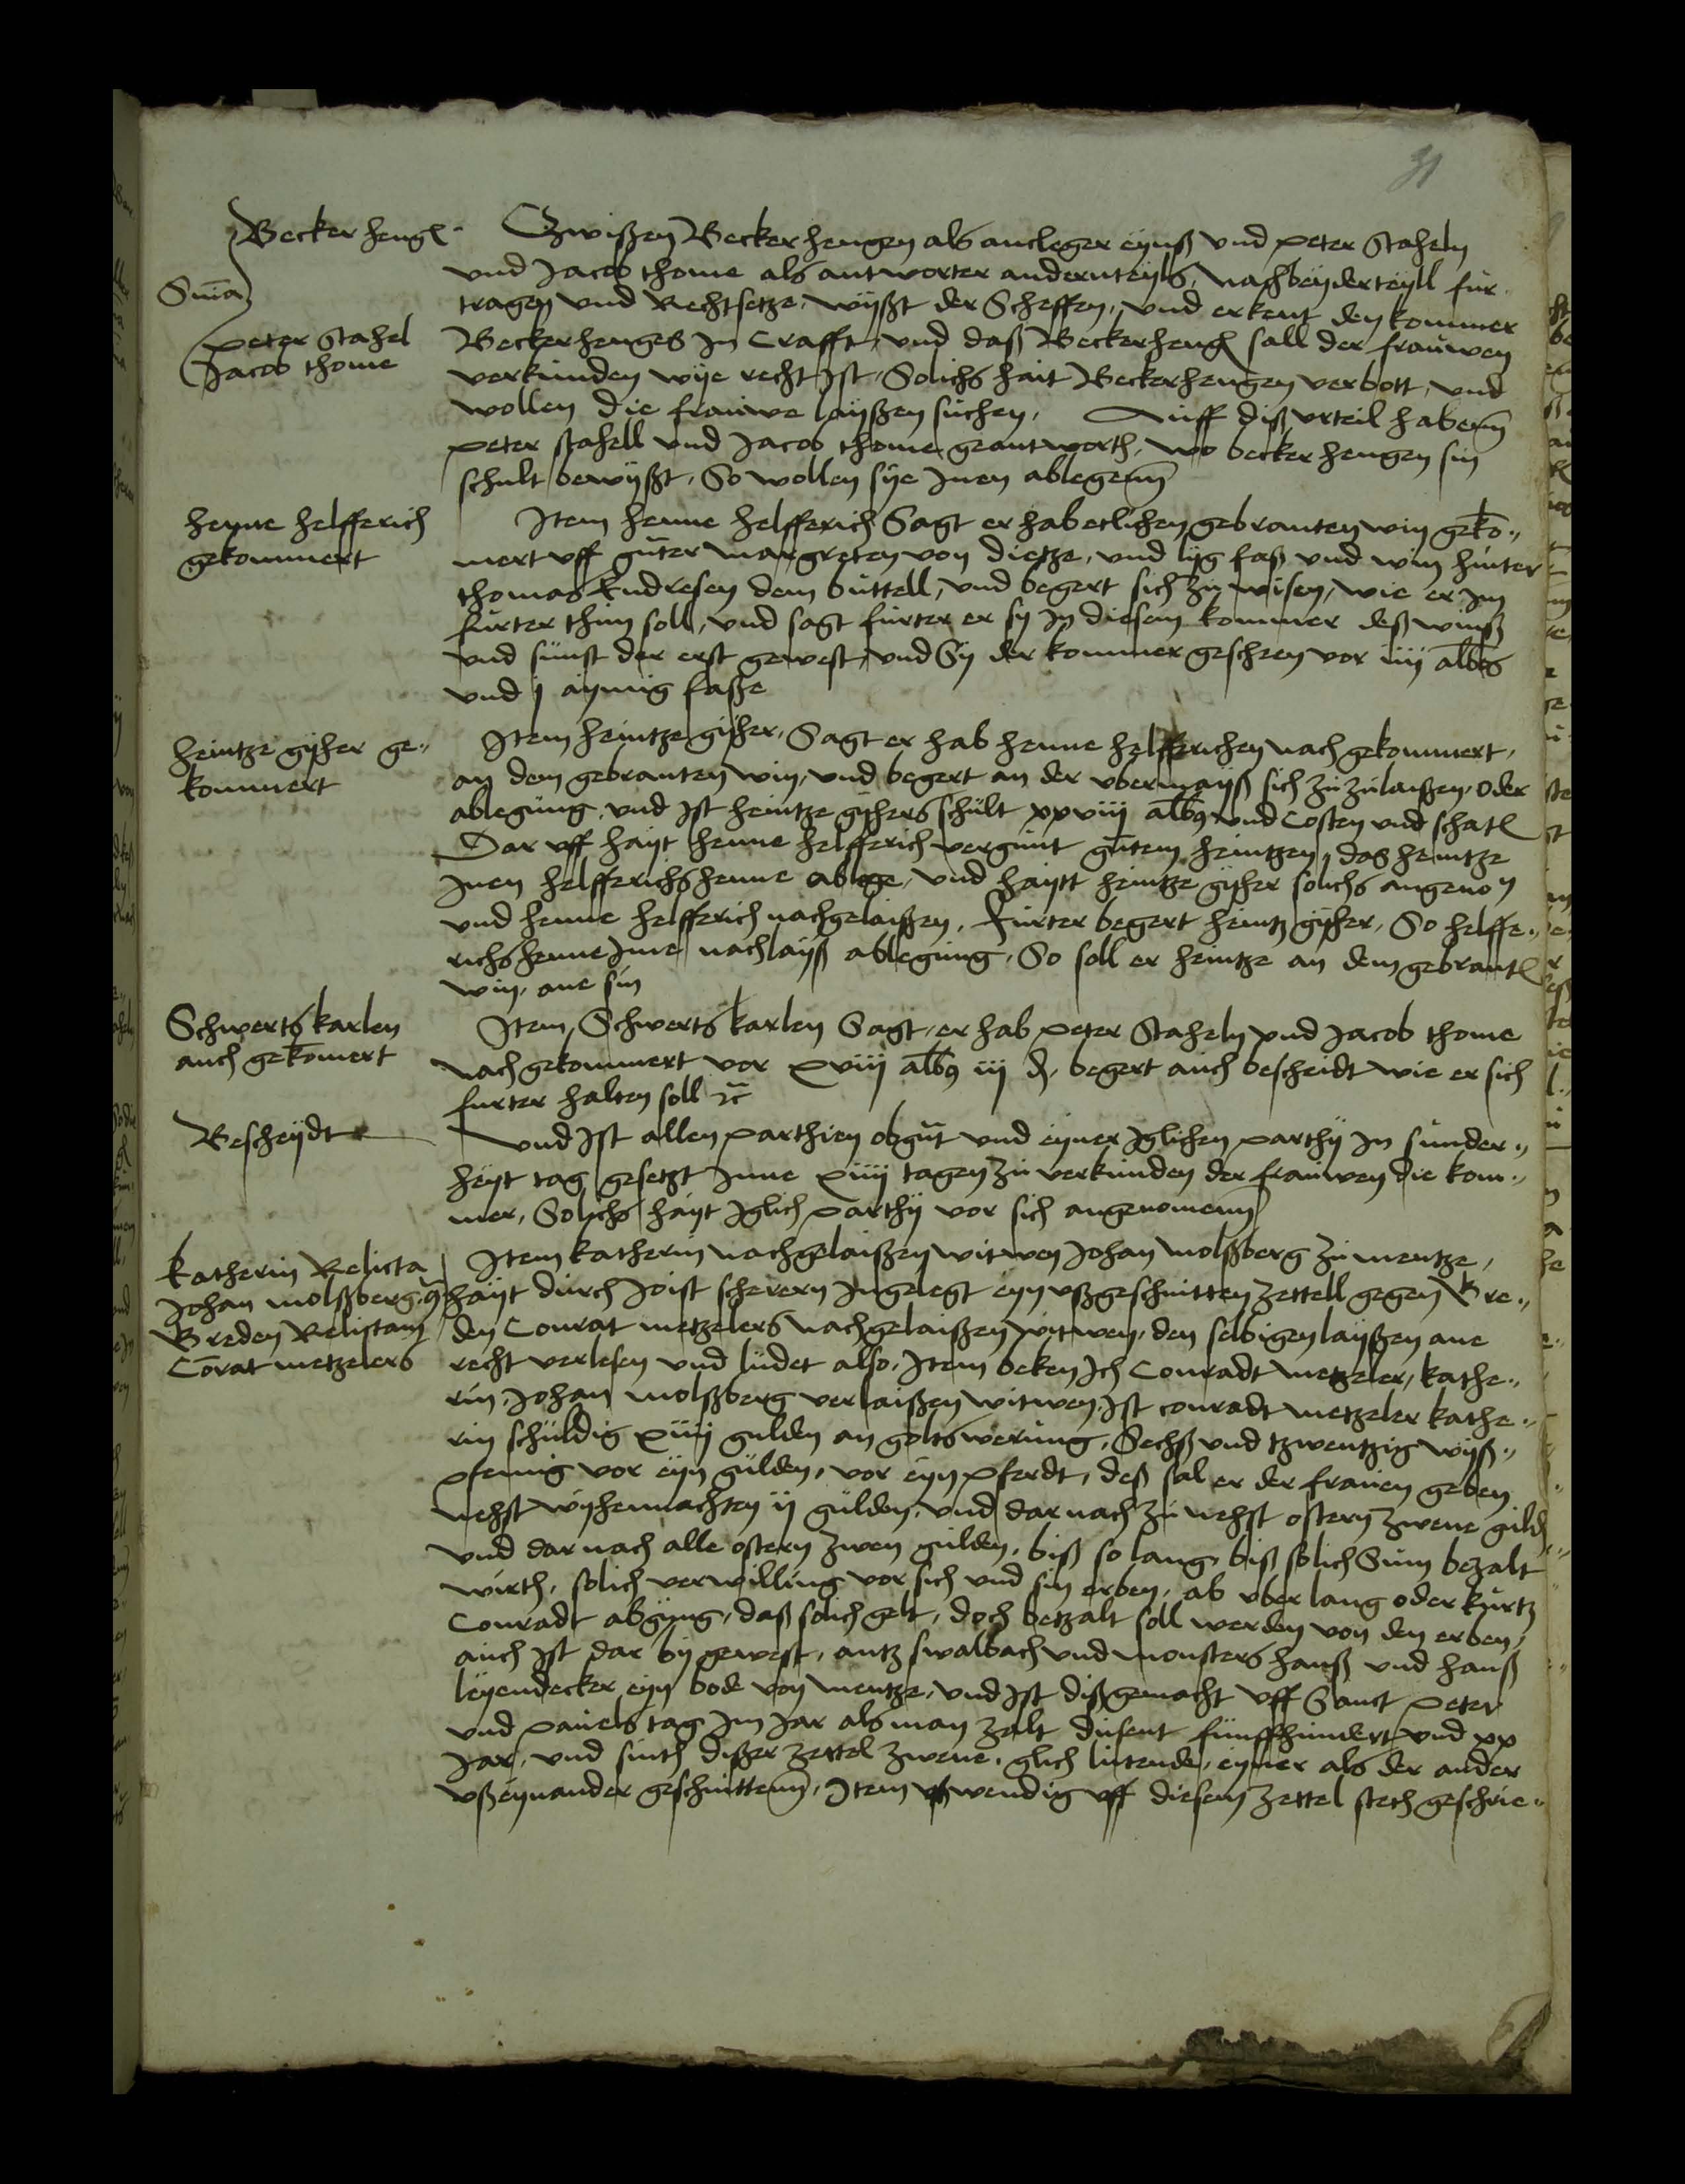 31
Becker heng(en)
S(e)n(tenti)a
Peter Stahel
Jacob thome
Zwißen Becker hengen als ancleger eynß vnd Peter Staheln
vnd Jacob thome als antworter anderuteyls, nach beyder teyll fur
tragen vnd Rechtsetze, wyßt der Scheffen, vnd erkent den kommer
Becker henges in Crafft, vnd daß Becker heng(en) sall der frauwen
verkunden wye recht ist, Solichs hait Becker hengen verbott, vnd
wollen die frauwe layßen suchen, Auff diß vrteil habenn
Peter stahell vnd Jacob thome geantworth, wo becker hengen sin
schult bewyßt, So wollen sye Inen ablegenn
henne helfferich
gekommert
Item henne helfferich Sagt er hab etlichen gebranten win geko̅
mert vff guter margreten von dietze, vnd lyg faß vnd win hinter
thomas Endresen dem buttell, vnd begert sich zu wisen, wie er Im
furter thun soll, vnd sagt furter er sy in diesem kommer deß winß
vnd sunst der erst gewest, vnd Sy der kommer gescheen vor iiij alb(u)s
vnd j aymig faße
heintze gyher ge
kommert
Item heintze gyher, Sagt er hab henne helfferichen nach gekommert,
an dem gebranten win, vnd begert an der vbermayß sich zu zulaißen, oder
ablegung, vnd ist heintze gyhers schult xxviij alb(us) vnd Costen vnd schat(en)
Dar vff hayt henne helfferich vergunt gutem heintzen, das heintze
Inen helfferichs henne ablege, vnd haytt heintze gyher solichs angeno(men)
vnd henne helfferich nachgelaißen, furter begert heintz gyher, So helffe
richs henne Ime nachlayß ablegung, So soll er heintze an dem gebrant(en)
win, ane sin
Schwerts karlen
auch geko̅mert
Item, Schwerts karlen Sagt, er hab Peter Staheln vnd Jacob thome
nach gekommert vor xviij alb(us) iij d, begert auch bescheidt wie er sich
furter halten soll etc
Bescheydt
Vnd ist allen Parthien obg(en)ant vnd eyner Iglichen Parthy in sunder
heyt tag gesetzt Inne xiiij tagen zu verkunden der frauwen die kom
mer, Solichs hayt Iglich Parthy vor sich angenomenn
Katherin Relicta
Johan molßberg (contra)
Breden Relictam
Co̅rat metzelers
Item katherin nachgelaißen witwen Johan molßberg zu mentze,
hayt durch Joist scherern Ingelegt eyn vßgeschnitten zettell gegen Bre
den Conrat metzelers nachgelaißen witwen, den selbigen layßen ane
recht verlesen vnd ludet also, Item beken Ich Conradt metzeler, kathe
rin, Johan molßberg verlaißen witwen, Ist conradt metzeler kathe
rin schuldig xiiij gulden an golts werung, Sechß vnd tzwentzig wyß
pfennig vor eyn gulden, vor eyn pferdt, deß sal er der frauen geben
nehst wyhennachten ij gulden, vnd dar nach zu nehst ostern zwene guld(en)
vnd dar nach alle ostern zwen gulden, biß so lang, biß solich Sum bezalt
wirth, solich verwilling vor sich vnd sin erben, ab vber lang oder kurtz
Conradt abgyng, daß solich gelt, doch betzalt soll werden von den erben,
auch ist dar by gewest, antz swalbach vnd monsters hanß vnd hanß
leyendecker eyn bode von mentze, vnd ist diß gemacht vff Sanct Peter
vnd Pauels tag Im Jar als man zalt dusent funffhundert vnd xx
Jar, vnd sinth dißer zettel zwene, glich lutende, eyner als der ander
vß eynander geschnittenn, Item vßwendig vff diesem zettel steth geschrie